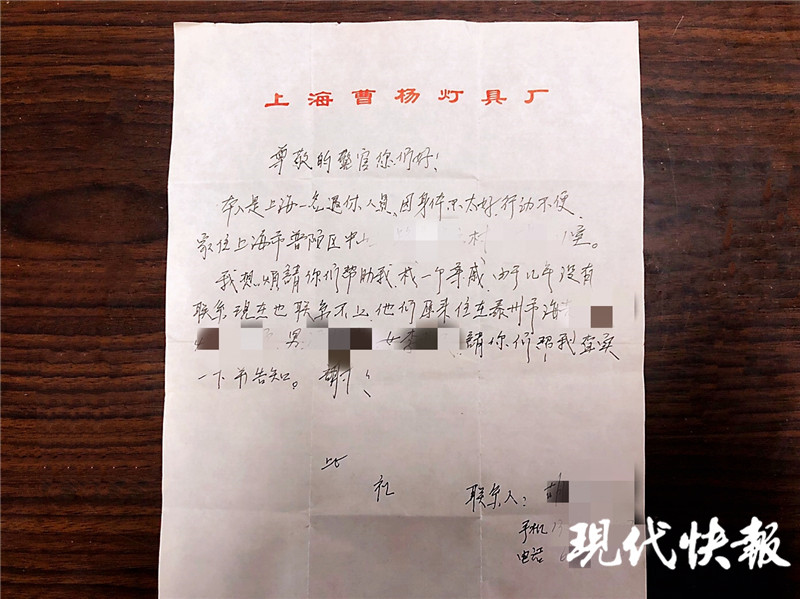 上海曹杨灯具厂
尊敬的警官你们好！
本人是上海一名退休人员、因身体不太好、行动不便
家住上海市普陀区中山 村 1室。
我想烦請你们帮助我找一个亲戚、由于几年没有
联系现在也联系不上、他们原来住在泰州市海
男 女李 請你们帮我查实
一下并告知。谢谢！
此
礼
联系人：
手机13
电话
现代快報